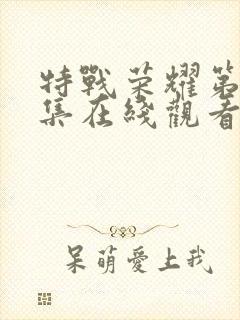 特戰荣耀第
集在綫觀看
呆萌愛上我